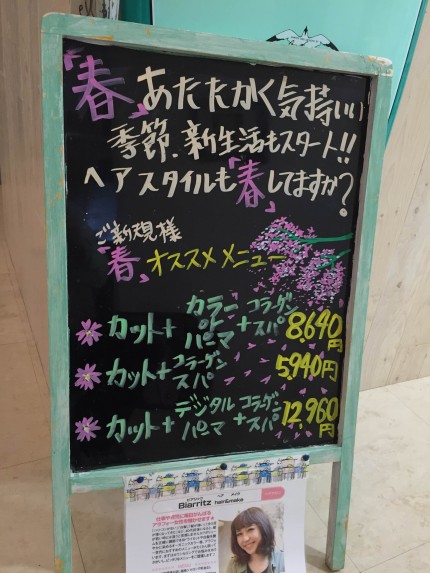 「春」あたたかく気持いい
季節、新生活もスタート!!
ヘアスタイルも「春」してますか?
ご新規様
「春」オススメメニュー
カット+カラーorパーマ+コラーゲンスパ 8,640円
カット+コラーゲンスパ 5,940円
カット+デジタルパーマ+コラーゲンスパ 12,960円
ビアリッツ ヘア メイク
Biarritz hair&make